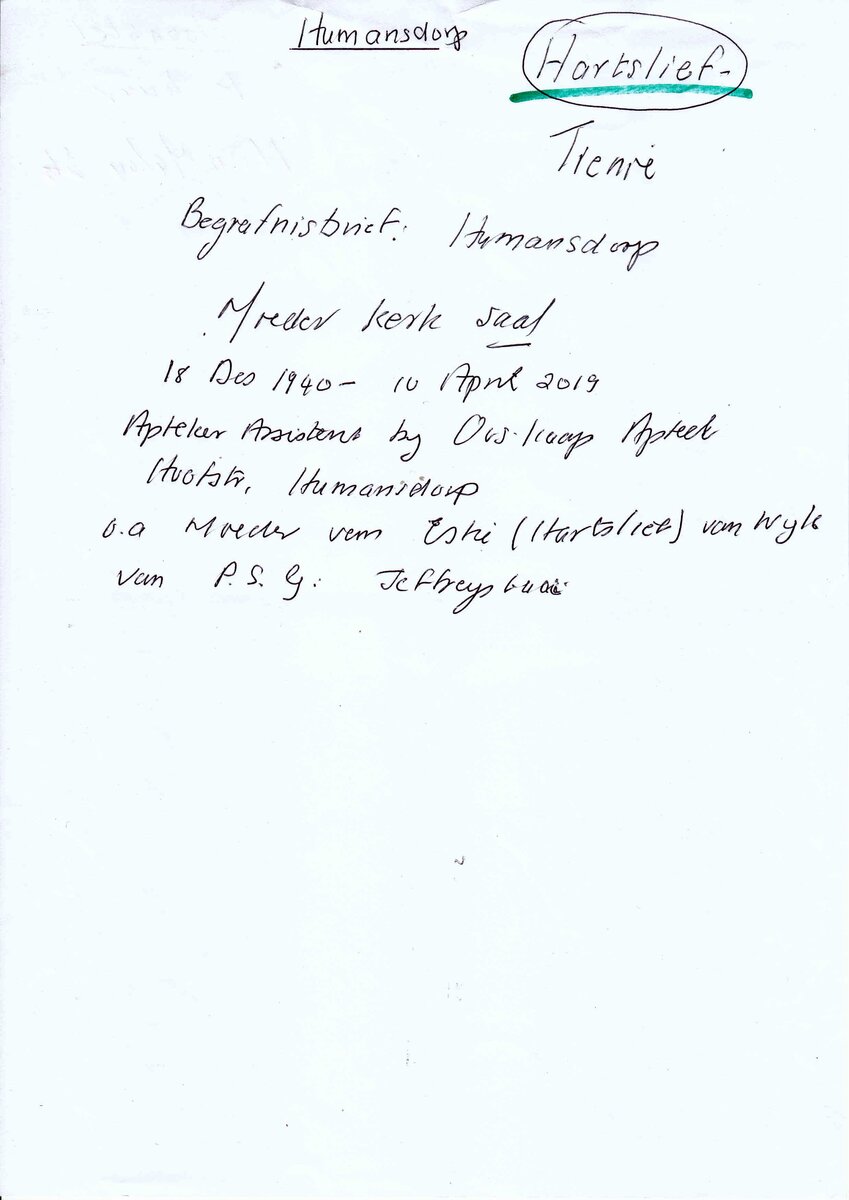 Humansdorp
Hartslief-
Trenie
Begrafnisbrief: Humansdorp
Moeder kerk saal
18 Des 1940 - 10 April 2019
Apteker Assistent by Oos-Kaap Apteek
Hoofstr, Humansdorp
o.a Moeder van Estie (Hartslief) van Wyk
van P.S.G: Jeffreysbaai